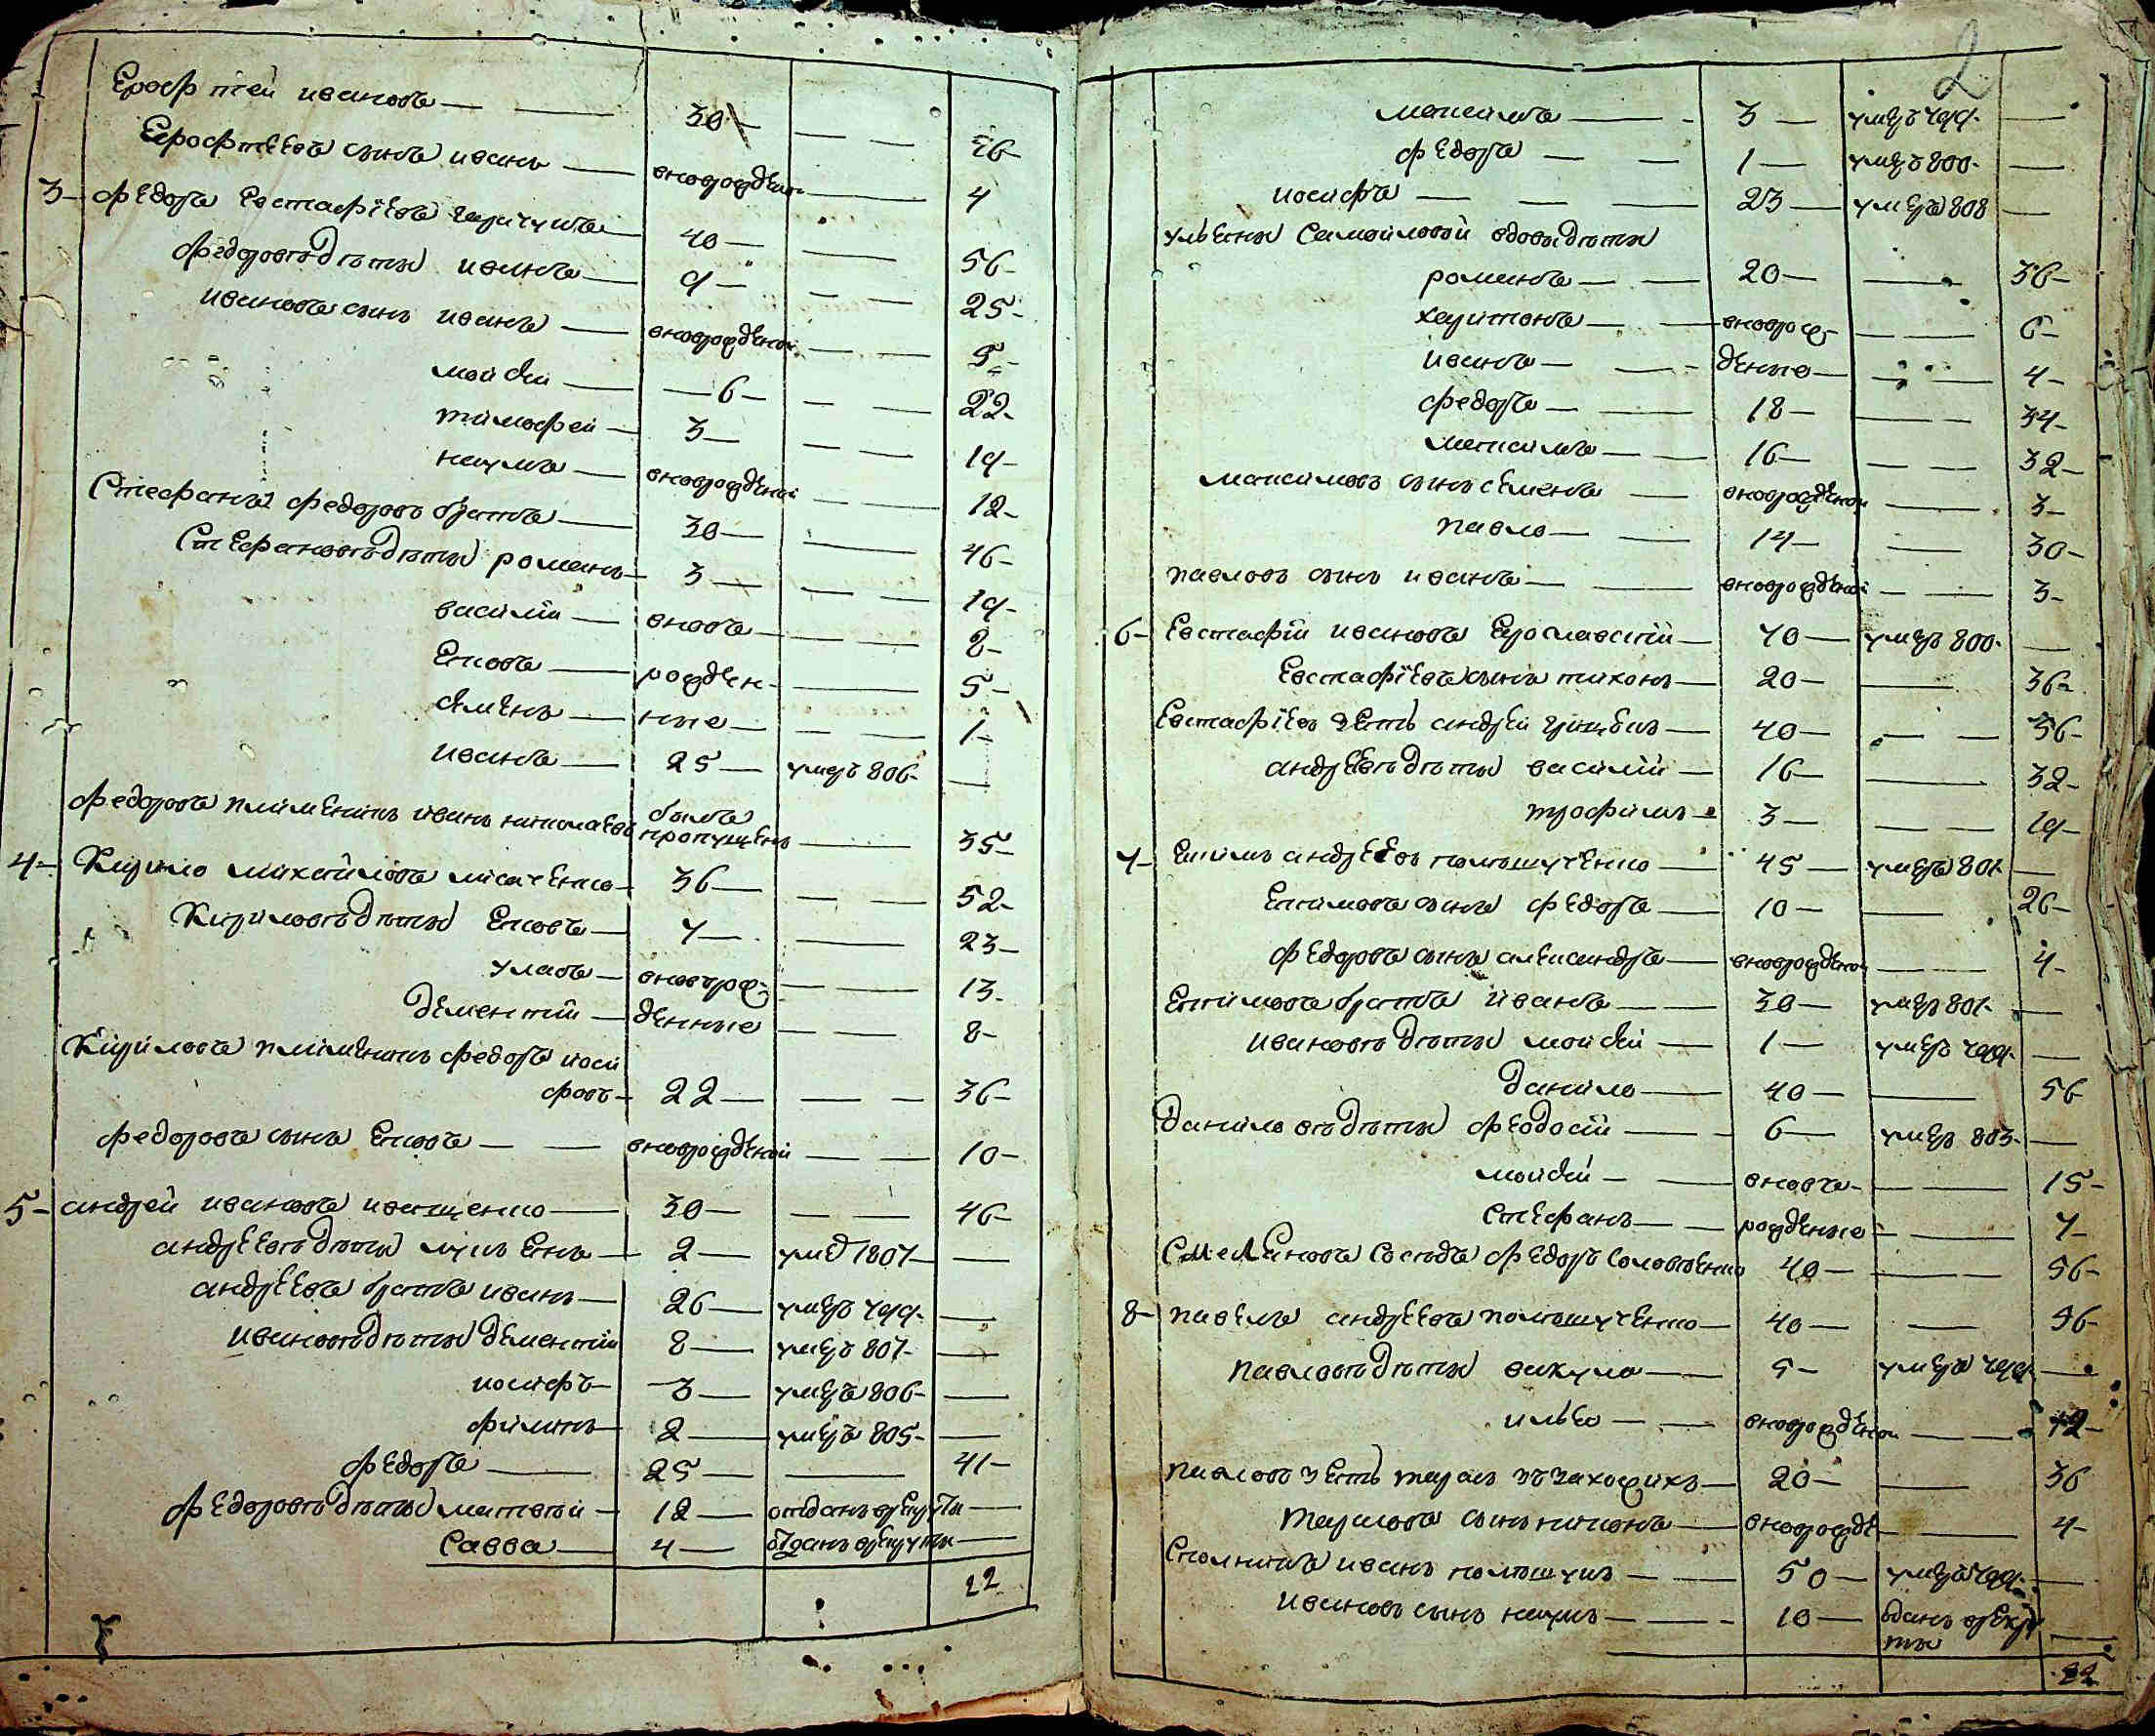 Ерофтей Ивановъ — 30 — — 46
Ерофтеевъ сынъ Иванъ — вноврожденой — 4
3 — Федоръ Евстафіевъ — 40 — — 56
Федоровы дѣти Иванъ — 9 — — 25
Ивановъ сынъ Иванъ — вноврожденой — 5
Мойсей — 6 — — 22
Тимофей — 3 — — 19
Наумъ — вноврожденой — 12
Стефанъ Федоровъ братъ — 30 — — 46
Стефановы дѣти Романъ — 3 — — 19
Василій — вновь — 2
Яковъ — рожден — 5
Семенъ — ные — 1
Иванъ — 25 — умеръ 806 —
Федоровъ племеникъ Иванъ Николаевъ былъ пропущенъ — 35
4 — Кирило Михайловъ Лисаченко — 36 — — 52
Кириловы дѣти Яковъ — 7 — — 23
Уласъ — вноврож — 13
Дементій — денные — 8
Кириловъ племеникъ Федоръ Йоси
фовъ — 22 — — 36
Федоровъ сынъ Яковъ — вноврожденой — 10
5 — Андрей Ивановъ Иващенко — 30 — — 46
Андреевы дѣти Лукъянъ — 2 — умер 1807 —
Андреевъ братъ Иванъ — 26 — умеръ 799 —
Ивановы дѣти Дементій — 8 — умеръ 807 —
Иосифъ — 3 — умеръ 806 —
Филипъ — 2 — умеръ 805 —
Федоръ — 25 — — 41
Федоровы дѣти Матвей — 12 — отданъ врекруты —
Савва — 4 — отданъ врекруты —
22
2
Максимъ — 3 — умеръ 799 —
Федоръ — 1 — умеръ 800 —
Иосифъ — 23 — умеръ 808 —
Ульяны Самойловой вдовы дѣти
Романъ — 20 — — 36
Харитонъ — вноврож — 6
Иванъ — деные — 4
Федоръ — 18 — — 34
Максимъ — 16 — — 32
Максимовъ сынъ Семенъ — вноврожденой — 3
Павло — 14 — — 30
Павловъ сынъ Иванъ — вноврожденой — 3
6 — Евстафій Ивановъ Ерославскій — 70 — умеръ 800 —
Евстафіевъ сынъ Тихонъ — 20 — — 36
Евстафіевъ зеть Андрей — 40 — — 56
Андреевы дѣти Василій — 16 — — 32
Трофимъ — 3 — — 19
7 — Екимъ Андреевъ — 45 — умеръ 801 —
Екимовъ сынъ Федоръ — 10 — — 26
Федоровъ сынъ Александръ — вноврожденой — 4
Екимовъ братъ Иванъ — 30 — умеръ 801 —
Ивановы дѣти Мойсей — 1 — умеръ 799 —
Данило — 40 — — 56
Даниловы дѣти Феодосій — 6 — умеръ 803 —
Мойсей — вновъ — 15
Стефанъ — рожденые — 7
сосѣдъ Федоръ — 40 — — 56
8 — Павелъ Андреевъ — 40 — — 56
Павловы дѣти Викула — 5 — умеръ 799 —
Илько — вноврожденой — 12
Павловъ зеть Тарасъ — 20 — — 36
Тарасовъ сынъ Никонъ — вноврожде — 4
Иванъ — 50 — умеръ 799 —
Ивановъ сынъ Наумъ — 10 — отданъ врекру
ты —
22